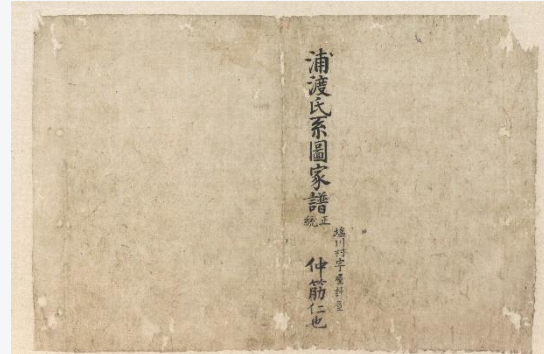 浦渡氏系圖家譜
正統
塩川村字
仲筋仁也